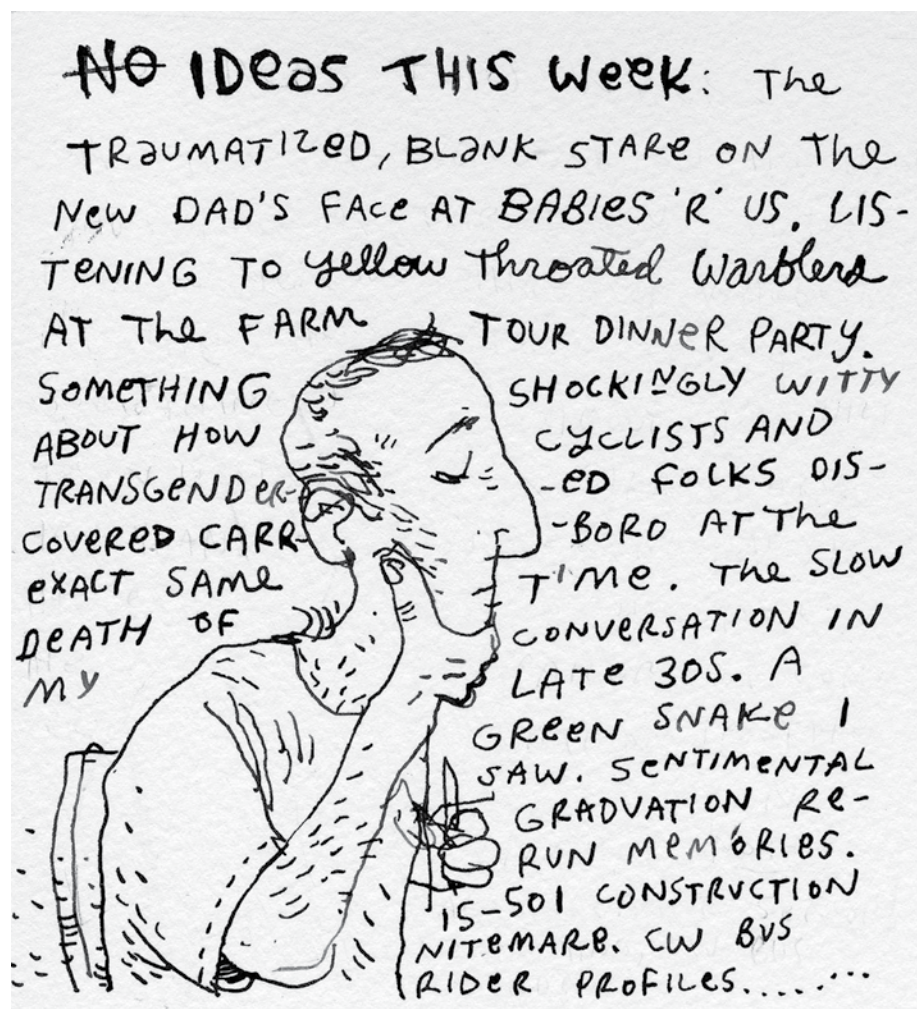 NO IDeas THIS Week: The
TRaUMATIZeD, BLaNK STARe ON The
New DAD'S FAce AT BABIeS 'R' US. LIS-
TeNING TO yellow Throated Warblers
AT The FARM TOUR DINNeR PARTY.
SOMeTHING SHOCKINGLY WITTY
ABOUT HOW CYCLISTS AND
TRANSGeNDeR- -eD FOLKS DIS-
COVeReD CARR- -BORO AT The
eXACT SAMe TIMe. The SLOW
DeATH OF CONVeRSATION IN
MY LATe 30S. A
GReeN SNAKe I
SAW. SeNTIMeNTAL
GRADUATION Re-
RUN MeMORIeS.
15-501 CONSTRUCTION
NITeMARe. CW BUS
RIDeR PROFILeS........